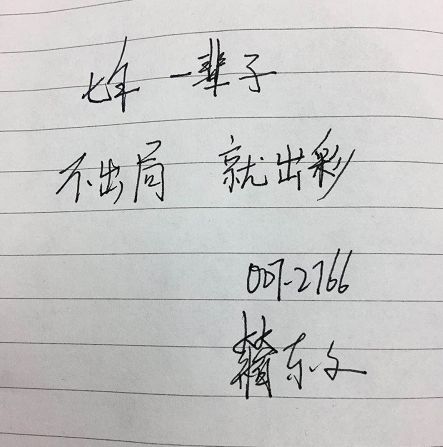 七年 一辈子
不出局 就出彩
007-2766
东文